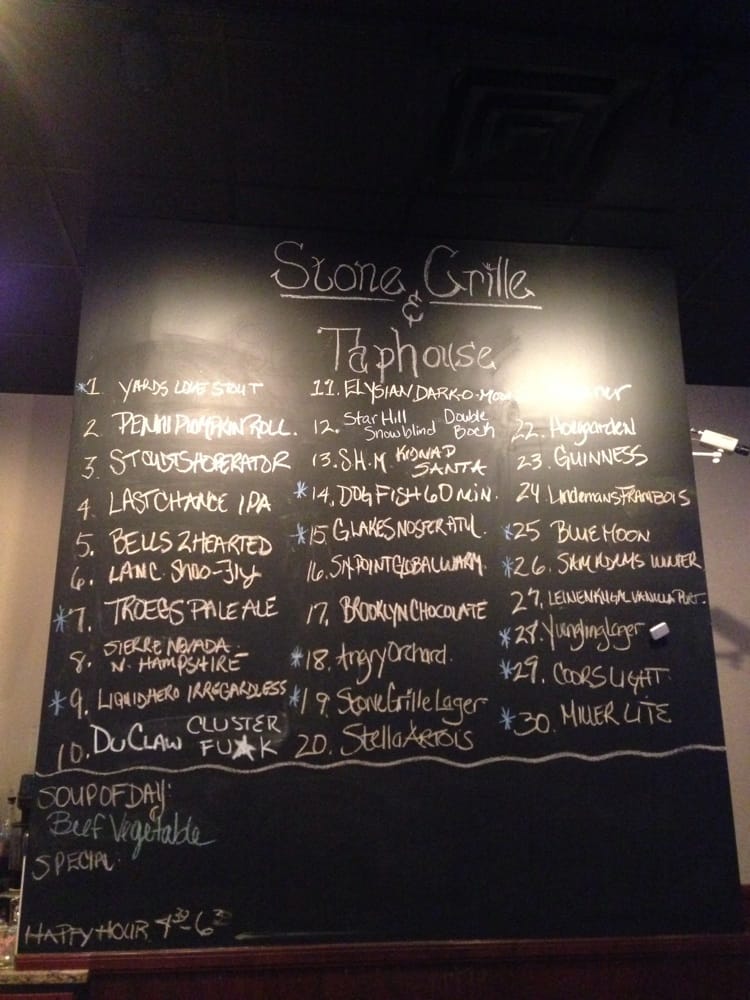 Stone Grille
&
Taphouse
*1 YARDS LOVE STOUT
2 PENN PUMPKIN ROLL.
3. STOUDTS HOPERATOR
4. LAST CHANCE IPA
5. BELLS 2 HEARTED
6. LANC. SHOO-FLY
*7. TROEGS PALE ALE
8. SIERRE NEVADA -
N. HAMPSHIRE
*9. LIQUID HERO IRREGARDLESS
10. DUCLAW CLUSTER
FU★K
11. ELYSIAN DARK-O-MOON
12. Star Hill Double
Snowblind Bock
13. S.H.M. KIDNAP
SANTA
*14. DOGFISH 60 MIN.
*15 G. LAKES NOSFERATU.
16. SN. POINT GLOBAL WARM.
17. BROOKLYN CHOCOLATE
*18. Angry Orchard.
*19. Stone Grille Lager
20. Stella Artois
22. Hoegarden
23. GUINNESS
24 Lindemans FRAMBOIS
*25 BLUE MOON
*26. SAM ADAMS WINTER
27. LEINENKUGAL VANILLA PORT.
*28. Yuengling Lager
*29. COORS LIGHT
*30. MILLER LITE
SOUP OF DAY:
Beef Vegetable
SPECIAL:
HAPPY HOUR 4³⁰-6³⁰